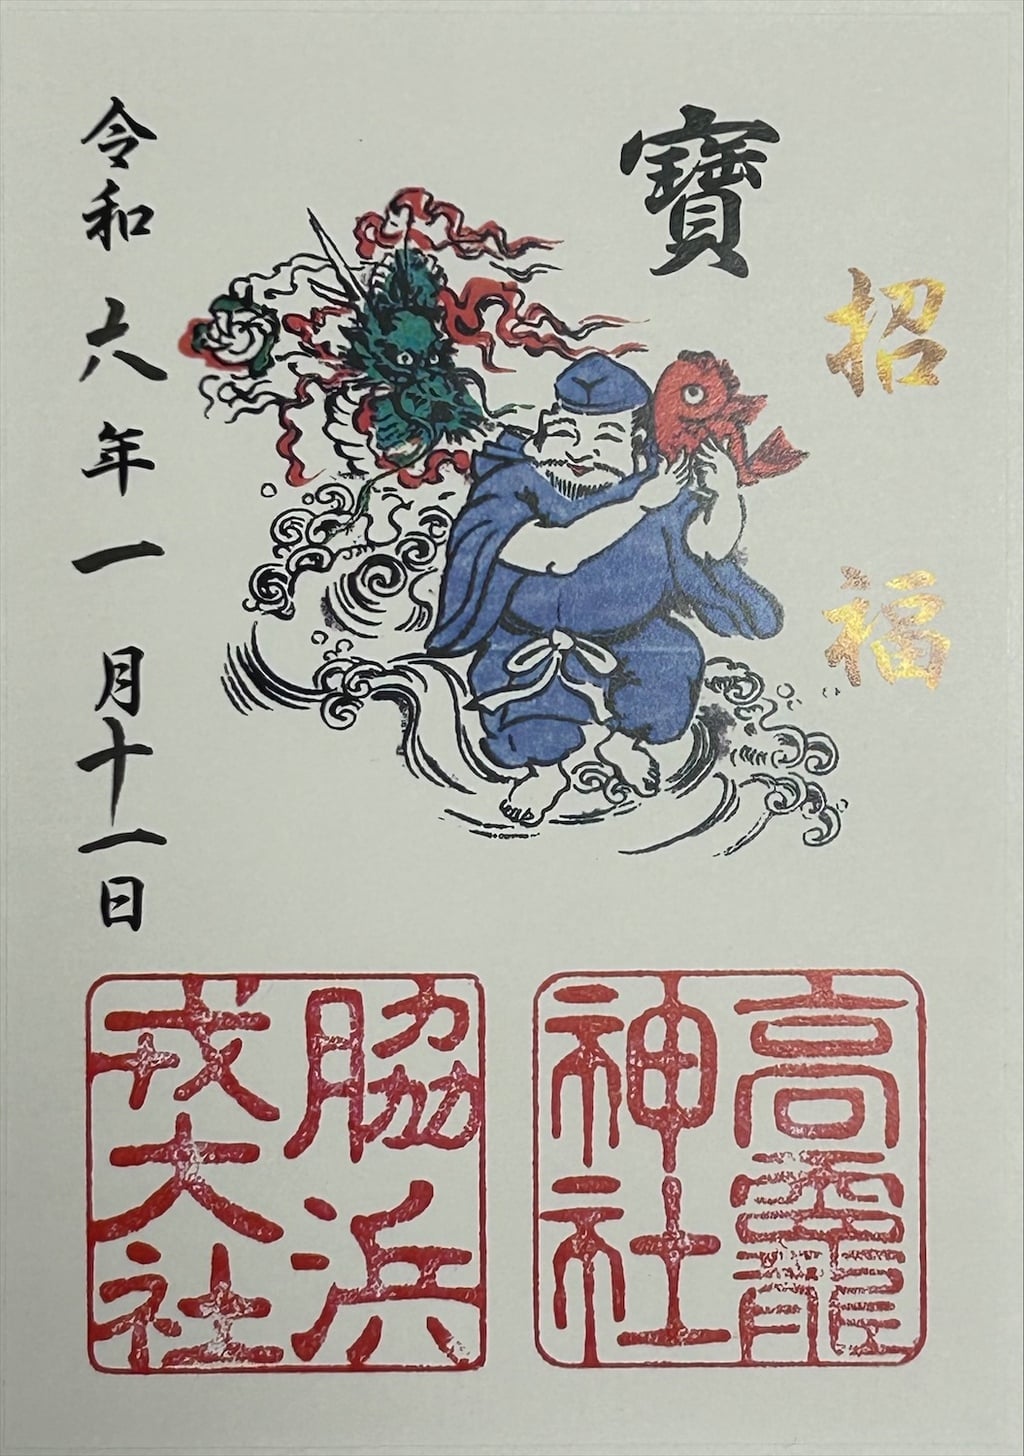 寶
招福
令和六年一月十一日
高龗神社
脇浜戎大社